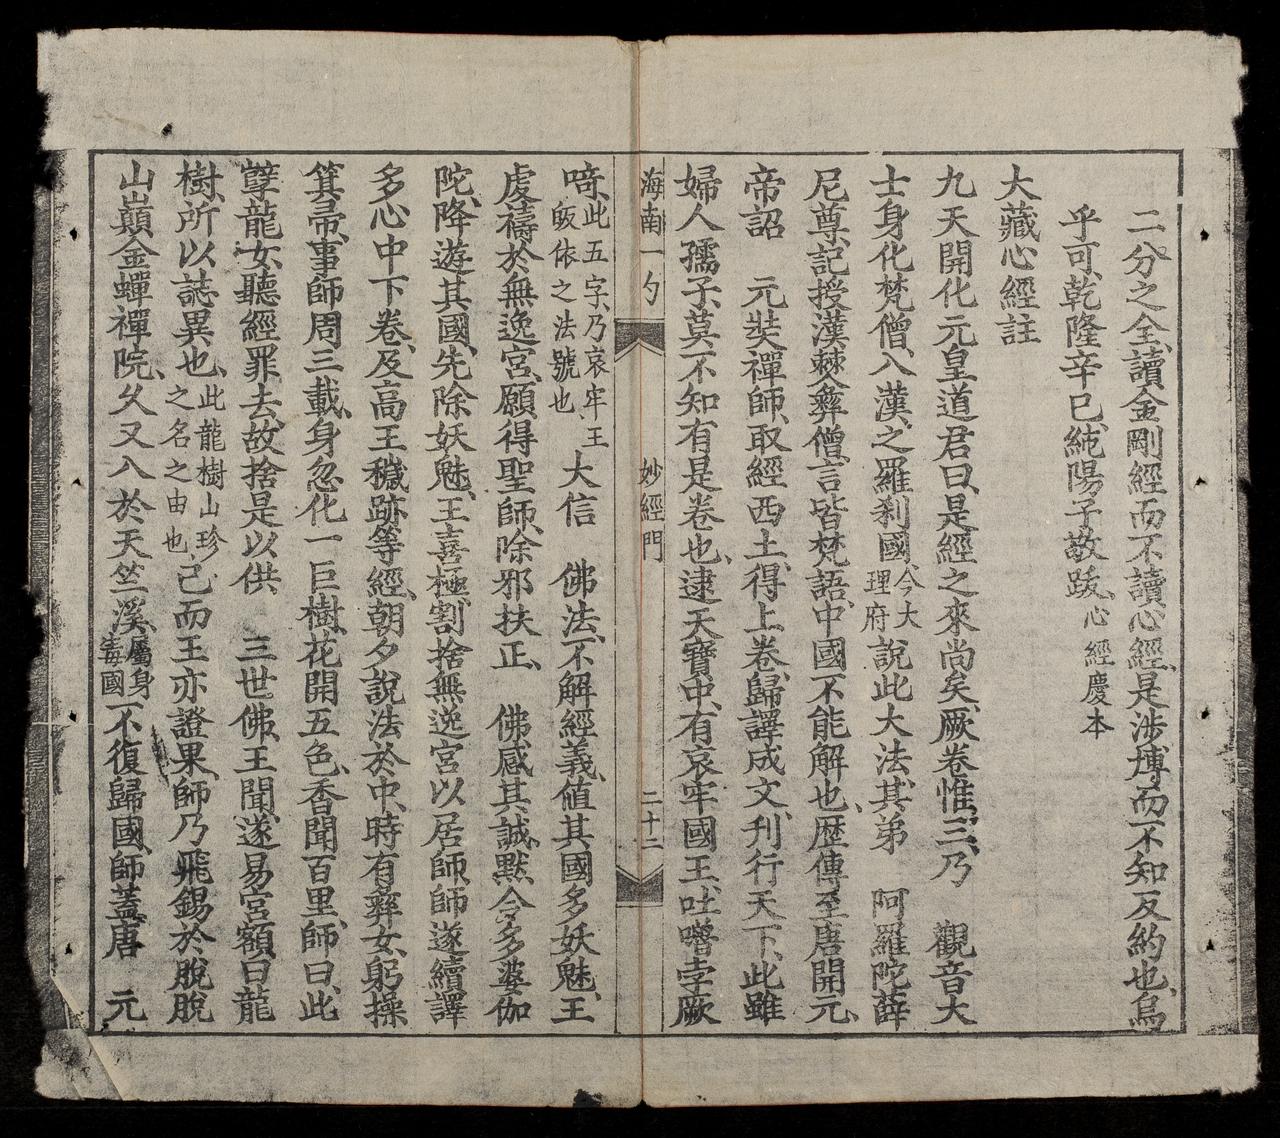 二分之全、讀金剛經而不讀心經、是涉博而不知反約也、烏
乎可、乾隆辛巳、純陽子敬跋、心經慶本
大藏心經註
九天開化元皇道君曰、是經之來尚矣、厥卷惟三、乃 觀音大
士身化梵僧、入漢、之羅刹國、今大理府說此大法、其弟 阿羅陀薛
尼尊、記授漢㒒彜僧、言皆梵語、中國不能解也、歷傳至唐開元、
帝詔 元奘禪師、取經西土、得上卷、歸譯成文、刋行天下、此雖
婦人孺子、莫不知有是卷也、逮天寶中、有哀牢國王、吐嚕孛厥
海南一勺 妙經門 二十二
㗁、此五字、乃哀牢王皈依之法號也 大信 佛法、不解經義、值其國多妖魅、王
虔禱於無逸宮、願得聖師、除邪扶正、 佛感其誠、默令多婆伽
陀、降遊其國、先除妖魅、王喜極、割捨無逸宮以居師、師遂續譯
多心中下卷、及高王穢跡等經、朝夕說法於中、時有彜女、躬操
箕帚、事師周三載、身忽化一巨樹、花開五色、香聞百里、師曰、此
孽龍女、聽經罪去、故捨是以供 三世佛、王聞、遂易宮額曰龍
樹、所以誌異也、此龍樹山珍之名之由也、己而王亦證果、師乃飛錫於脫脫
山巔金蟬禪院、久又入於天竺溪、屬身毒國一不復歸國、師蓋唐 元